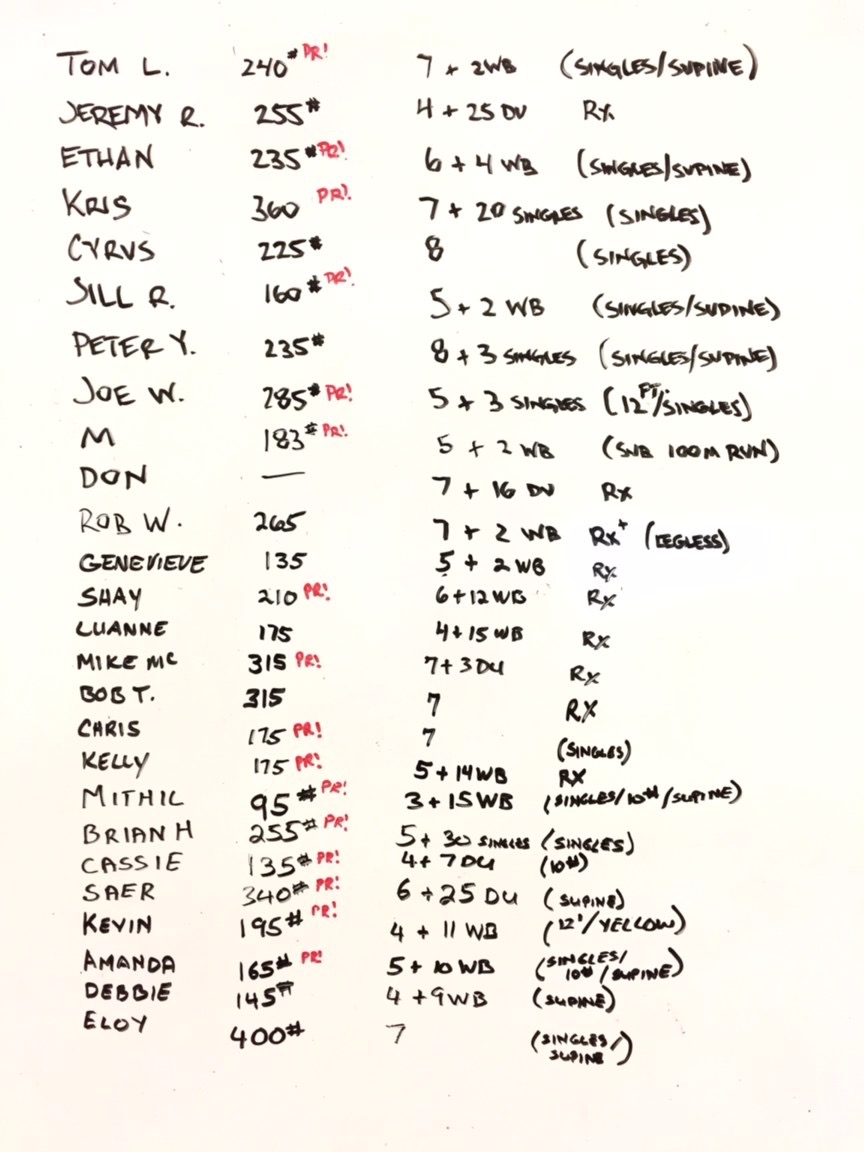 TOM L. 240# PR! 7 + 2WB (SINGLES/SUPINE)
JEREMY R. 255# 4 + 25 DU Rx
ETHAN 235# PR! 6 + 4 WB (SINGLES/SUPINE)
KRIS 360 PR! 7 + 20 SINGLES (SINGLES)
CYRUS 225# 8 (SINGLES)
JILL R. 160# PR! 5 + 2 WB (SINGLES/SUPINE)
PETER Y. 235# 8 + 3 SINGLES (SINGLES/SUPINE)
JOE W. 285# PR! 5 + 3 SINGLES (12FT./SINGLES)
M 183# PR! 5 + 2 WB (SUB 100M RUN)
DON — 7 + 16 DU Rx
ROB W. 265 7 + 2 WB Rx+ (LEGLESS)
GENEVIEVE 135 5 + 2WB Rx
SHAY 210 PR! 6+12WB Rx
LUANNE 175 4+15WB Rx
MIKE MC 315 PR! 7+3DU Rx
BOB T. 315 7 RX
CHRIS 175 PR! 7 (SINGLES)
KELLY 175 PR! 5+14WB RX
MITHIL 95# PR! 3+15WB (SINGLES/10#/SUPINE)
BRIAN H 255# PR! 5+ 30 SINGLES (SINGLES)
CASSIE 135# PR! 4+ 7DU (10#)
SAER 340# PR! 6 +25 DU (SUPINE)
KEVIN 195# PR! 4 + 11 WB (12'/YELLOW)
AMANDA 165# PR! 5+ 10 WB (SINGLES/
10#/SUPINE)
DEBBIE 145# 4 +9WB (SUPINE)
ELOY 400# 7 (SINGLES/
SUPINE)